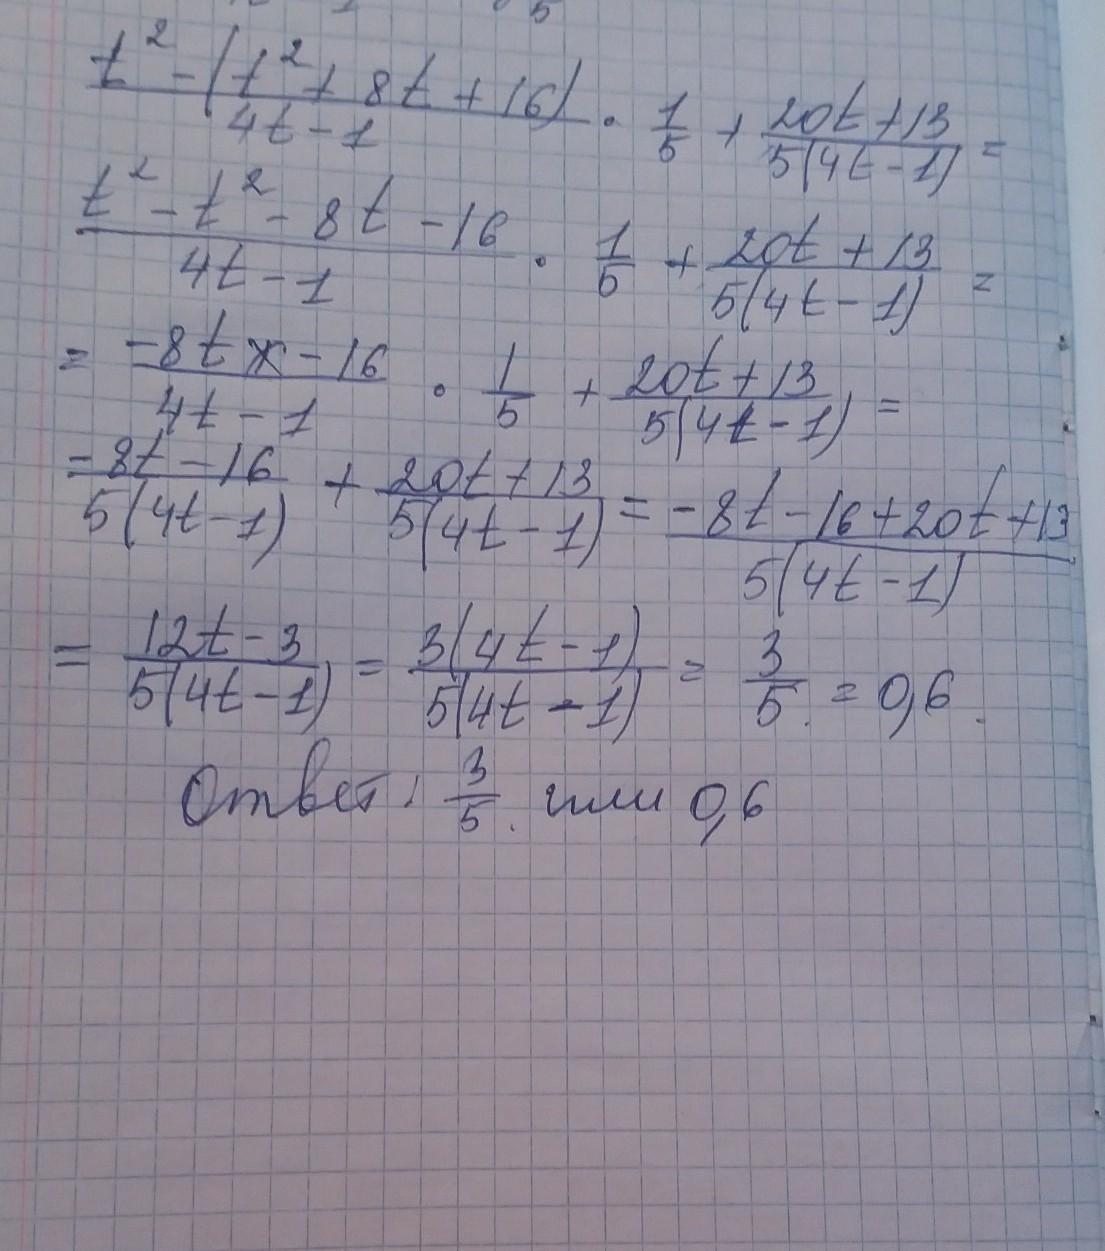 (t² - (t² + 8t + 16))/(4t - 1) · 1/5 + (20t + 13)/(5(4t - 1)) =
(t² - t² - 8t - 16)/(4t - 1) · 1/5 + (20t + 13)/(5(4t - 1)) =
= (-8t - 16)/(4t - 1) · 1/5 + (20t + 13)/(5(4t - 1)) =
(-8t - 16)/(5(4t - 1)) + (20t + 13)/(5(4t - 1)) = (-8t - 16 + 20t + 13)/(5(4t - 1))
= (12t - 3)/(5(4t - 1)) = (3(4t - 1))/(5(4t - 1)) = 3/5 = 0,6.
Ответ: 3/5 или 0,6